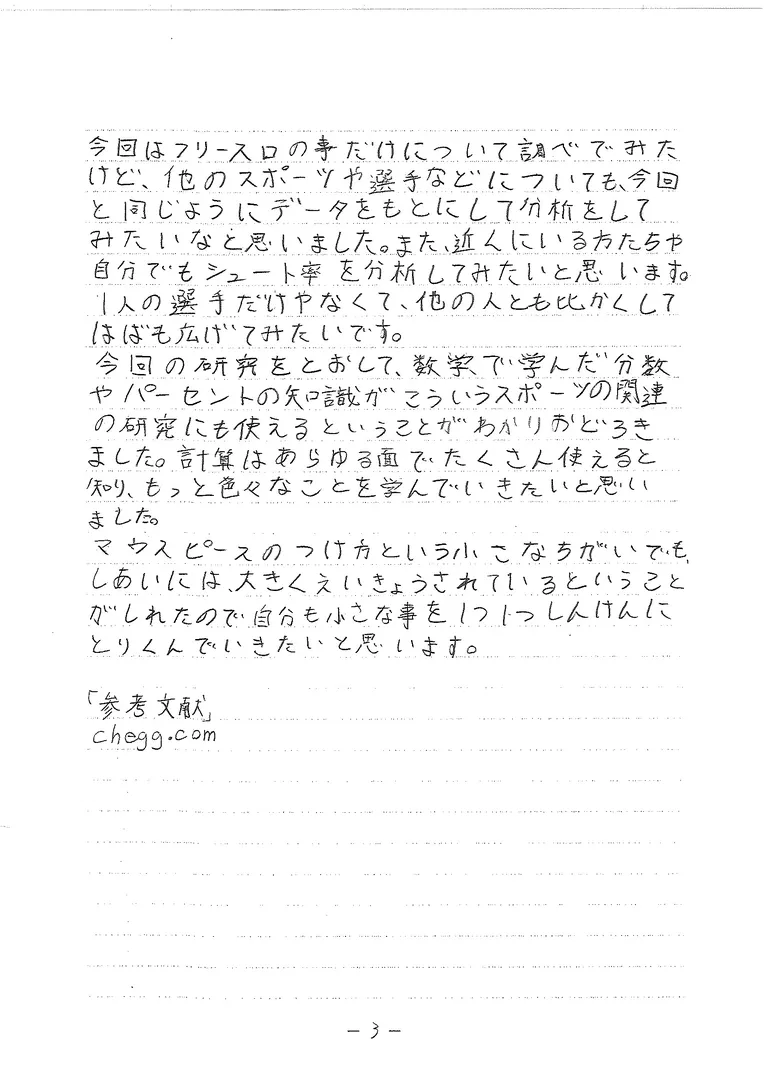 今回はフリースロの事だけについて調べでみた
けど、他のスポーツや選手などについても、今回
と同じようにデータをもとにして分析をして
みたいなと思いました。また、近んにいる方たちや
自分でもシュート率を分析してみたいと思います。
1人の選手だけやなくて、他の人とも比かくして
はばも広げてみたいです。
今回の研究をとおして、数学で学んだ分数
やパーセントの知識がこういうスポーツの関連
の研究にも使えるということがわかりおどろき
ました。計算はあらゆる面でたくさん使えると
知り、もっと色々なことを学んでいきたいと思い
ました。
マウスピースのつけ方という小さなちがいでも、
しあいには、大きくえいきょうされているということ
がしれたので自分も小さな事を1つ1つしんけんに
とりくんでいきたいと思います。
「参考文献」
chegg.com
- 3 -